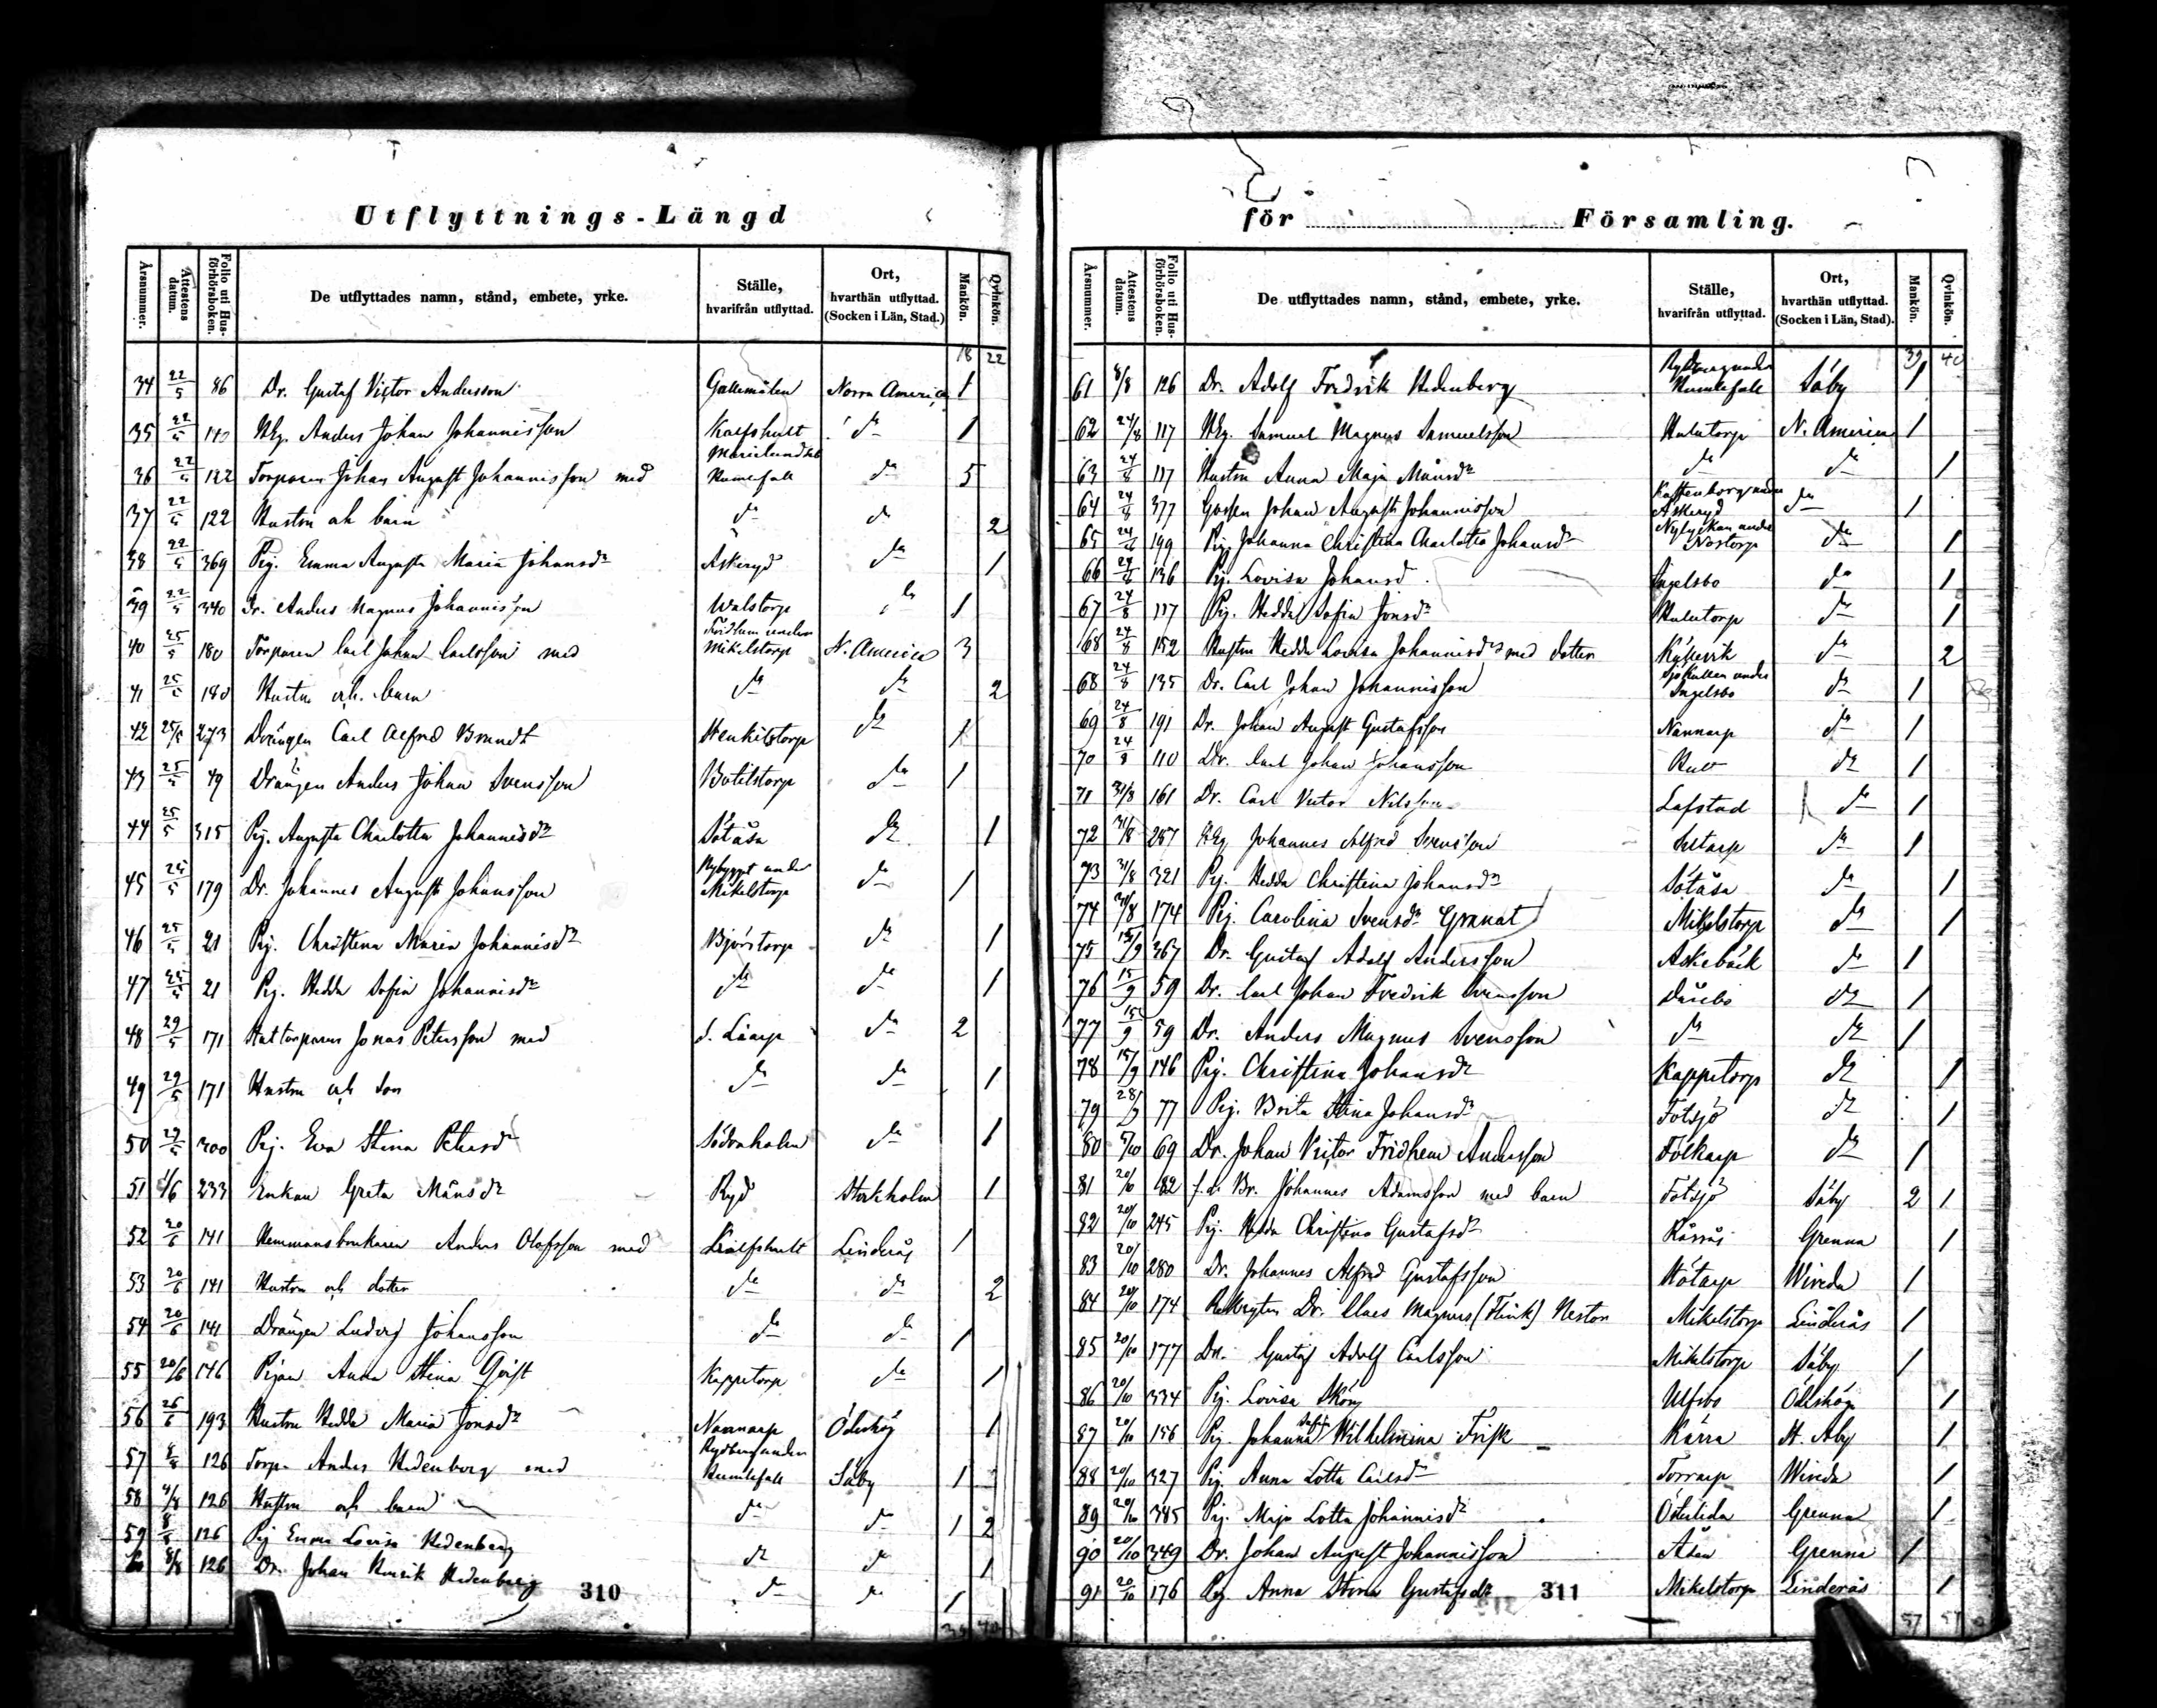 Utflyttnings-Längd
Årsnummer. Attestens datum. Folio uti Husförhörsboken. De utflyttades namn, stånd, embete, yrke. Ställe, hvarifrån utflyttad. Ort, hvarthän utflyttad. (Socken i Län, Stad.) Mankön. Qvinkön.
18 22
34 22/5 86 Dr. Gustaf Victor Andersson Gallemålen Norra America 1
35 22/5 140 Anders Johan Johannisson Kalfshult do 1
36 22/5 122 Torparen Johan August Johannisson med Humlefall do 5
37 22/5 122 Hustru och barn do do 2
38 22/5 369 Pig. Emma Augusta Maria Johansdr Askeryd do 1
39 22/5 340 Dr. Anders Magnus Johannisson Walstorp do 1
40 25/5 180 Torparen Carl Johan Carlsson med Fridhem under Mikelstorp N. America 3
41 25/5 180 Hustru och barn do do 2
42 25/5 273 Drängen Carl Alfred Brandt Henkilstorp do 1
43 25/5 49 Drängen Anders Johan Svensson Botilstorp do 1
44 25/5 315 Pig. Augusta Charlotta Johannisdr Sötåsa do 1
45 25/5 179 Dr. Johannes August Johansson Nybygget under Mikelstorp do 1
46 25/5 21 Pig. Christina Maria Johannisdr Björstorp do 1
47 25/5 21 Pig. Hedda Sofia Johannisdr do do 1
48 29/5 171 Jonas Petersson med do 2
49 29/5 171 Hustru och Son do do 1
50 29/5 300 Pig. Eva Stina Petersdr Söderholm do 1
51 1/6 233 Enkan Greta Månsdr Ryd Stockholm 1
52 20/6 141 Hemmansbrukaren Anders Olofsson med Linderås 1
53 20/6 141 Hustru och dotter do do 2
54 20/6 141 Drängen Ludvig Johansson do do 1
55 20/6 146 Pigan Anna Stina Qvist Kappetorp do 1
56 26/6 193 Hustru Hedda Maria Jonsdr Nannarp Ödeshög 1
57 8/8 126 Torp. Anders Hedenberg med Rydberg under Humlefall Säby 1
58 8/8 126 Hustru och barn do do 1 2
59 8/8 126 Pig Emma Lovisa Hedenberg do do 1
60 8/8 126 Dr. Johan Henrik Hedenberg do do 1
310
39 40
för Församling.
Årsnummer. Attestens datum. Folio uti Husförhörsboken. De utflyttades namn, stånd, embete, yrke. Ställe, hvarifrån utflyttad. Ort, hvarthän utflyttad. (Socken i Län, Stad). Mankön. Qvinkön.
39 40
61 8/8 126 Dr. Adolf Fredrik Hedenberg Rydberg under Humlefall Säby 1
62 24/8 117 Samuel Magnus Samuelsson Hulutorp N. America 1
63 24/8 117 Hustru Anna Maja Månsdr do do 1
64 24/8 377 Gossen Johan August Johannisson Askeryd do 1
65 24/8 199 Pig. Johanna Christina Charlotta Johansdr Nylyckan under Nostorp do 1
66 24/8 136 Pig. Lovisa Johansd. Ingelsbo do 1
67 24/8 117 Pig. Hedda Sofia Jonsdr Hulutorp do 1
68 24/8 152 Hustru Hedda Lovisa Johannisdr med dotter do 2
68 24/8 135 Dr. Carl Johan Johannisson Sjökullen under Ingelsbo do 1
69 24/8 191 Dr. Johan August Gustafsson Nannarp do 1
70 24/8 110 Dr. Carl Johan Johansson do 1
71 31/8 161 Dr. Carl Victor Nilsson Lafstad do 1
72 31/8 287 Johannes Alfred Svensson do 1
73 31/8 321 Pig. Hedda Christina Johansdr Sötåsa do 1
74 31/8 174 Pig. Carolina Svensdr Granat Mikelstorp do 1
75 15/9 267 Dr. Gustaf Adolf Andersson Askebäck do 1
76 15/9 59 Dr. Carl Johan Fredrik Svensson do 1
77 15/9 59 Dr. Anders Magnus Svensson do do 1
78 15/9 146 Pig. Christina Johansdr Kappetorp do 1
79 28/9 77 Pig. Brita Stina Johansdr Fotsjö do 1
80 69 Dr. Johan Victor Fridhem Andersson Folkarp do 1
81 20/10 82 f.d. Br. Johannes Adamsson med barn Fotsjö Säby 2 1
82 20/10 245 Pig. Hedda Christina Gustafsdr Grenna 1
83 20/10 280 Dr. Johannes Alfred Gustafsson Wireda 1
84 20/10 174 Rekryten Dr. Claes Magnus (Flink) Nestor Mikelstorp Linderås 1
85 20/10 177 Dr. Gustaf Adolf Carlsson Mikelstorp Säby 1
86 20/10 334 Pig. Lovisa Sköng Ulfsbo Ödeshög 1
87 20/10 156 Pig. Johanna Sofia Wilhelmina Frisk Kärra St. Aby 1
88 20/10 327 Pig. Anna Lotta Carlsdr Torrarp Wireda 1
89 20/10 385 Pig. Maja Lotta Johannisdr Österlida Grenna 1
90 20/10 349 Dr. Johan August Johannisson Åsen Grenna 1
91 20/10 176 Pig Anna Stina Gustafsdr Mikelstorp Linderås 1
311
57 57